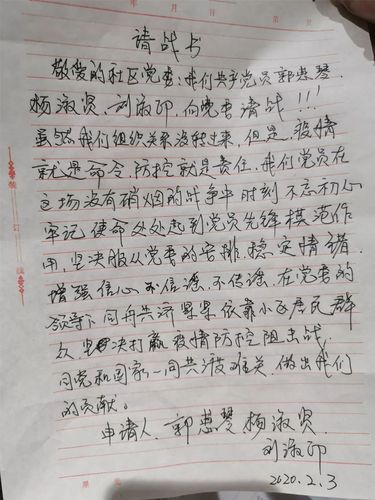 年 月 日
请战书
敬爱的社区党委:我们共产党员郭慧琴、
杨淑贤、刘淑印,向党委请战!!!
虽然我们组织关系没转过来,但是,疫情
就是命令,防控就是责任,我们党员在
这场没有硝烟的战争中时刻不忘初心
牢记使命处处起到党员先锋模范作
用,坚决服从党委的安排,稳定情绪.
增强信心不信谣不传谣,在党委的
领导下同舟共济紧紧依靠小区居民群
众,坚决打赢疫情防控阻击战,
同党和国家一同共渡难关,做出我们
的贡献。
申请人、郭慧琴、杨淑贤、
刘淑印
2020.2.3